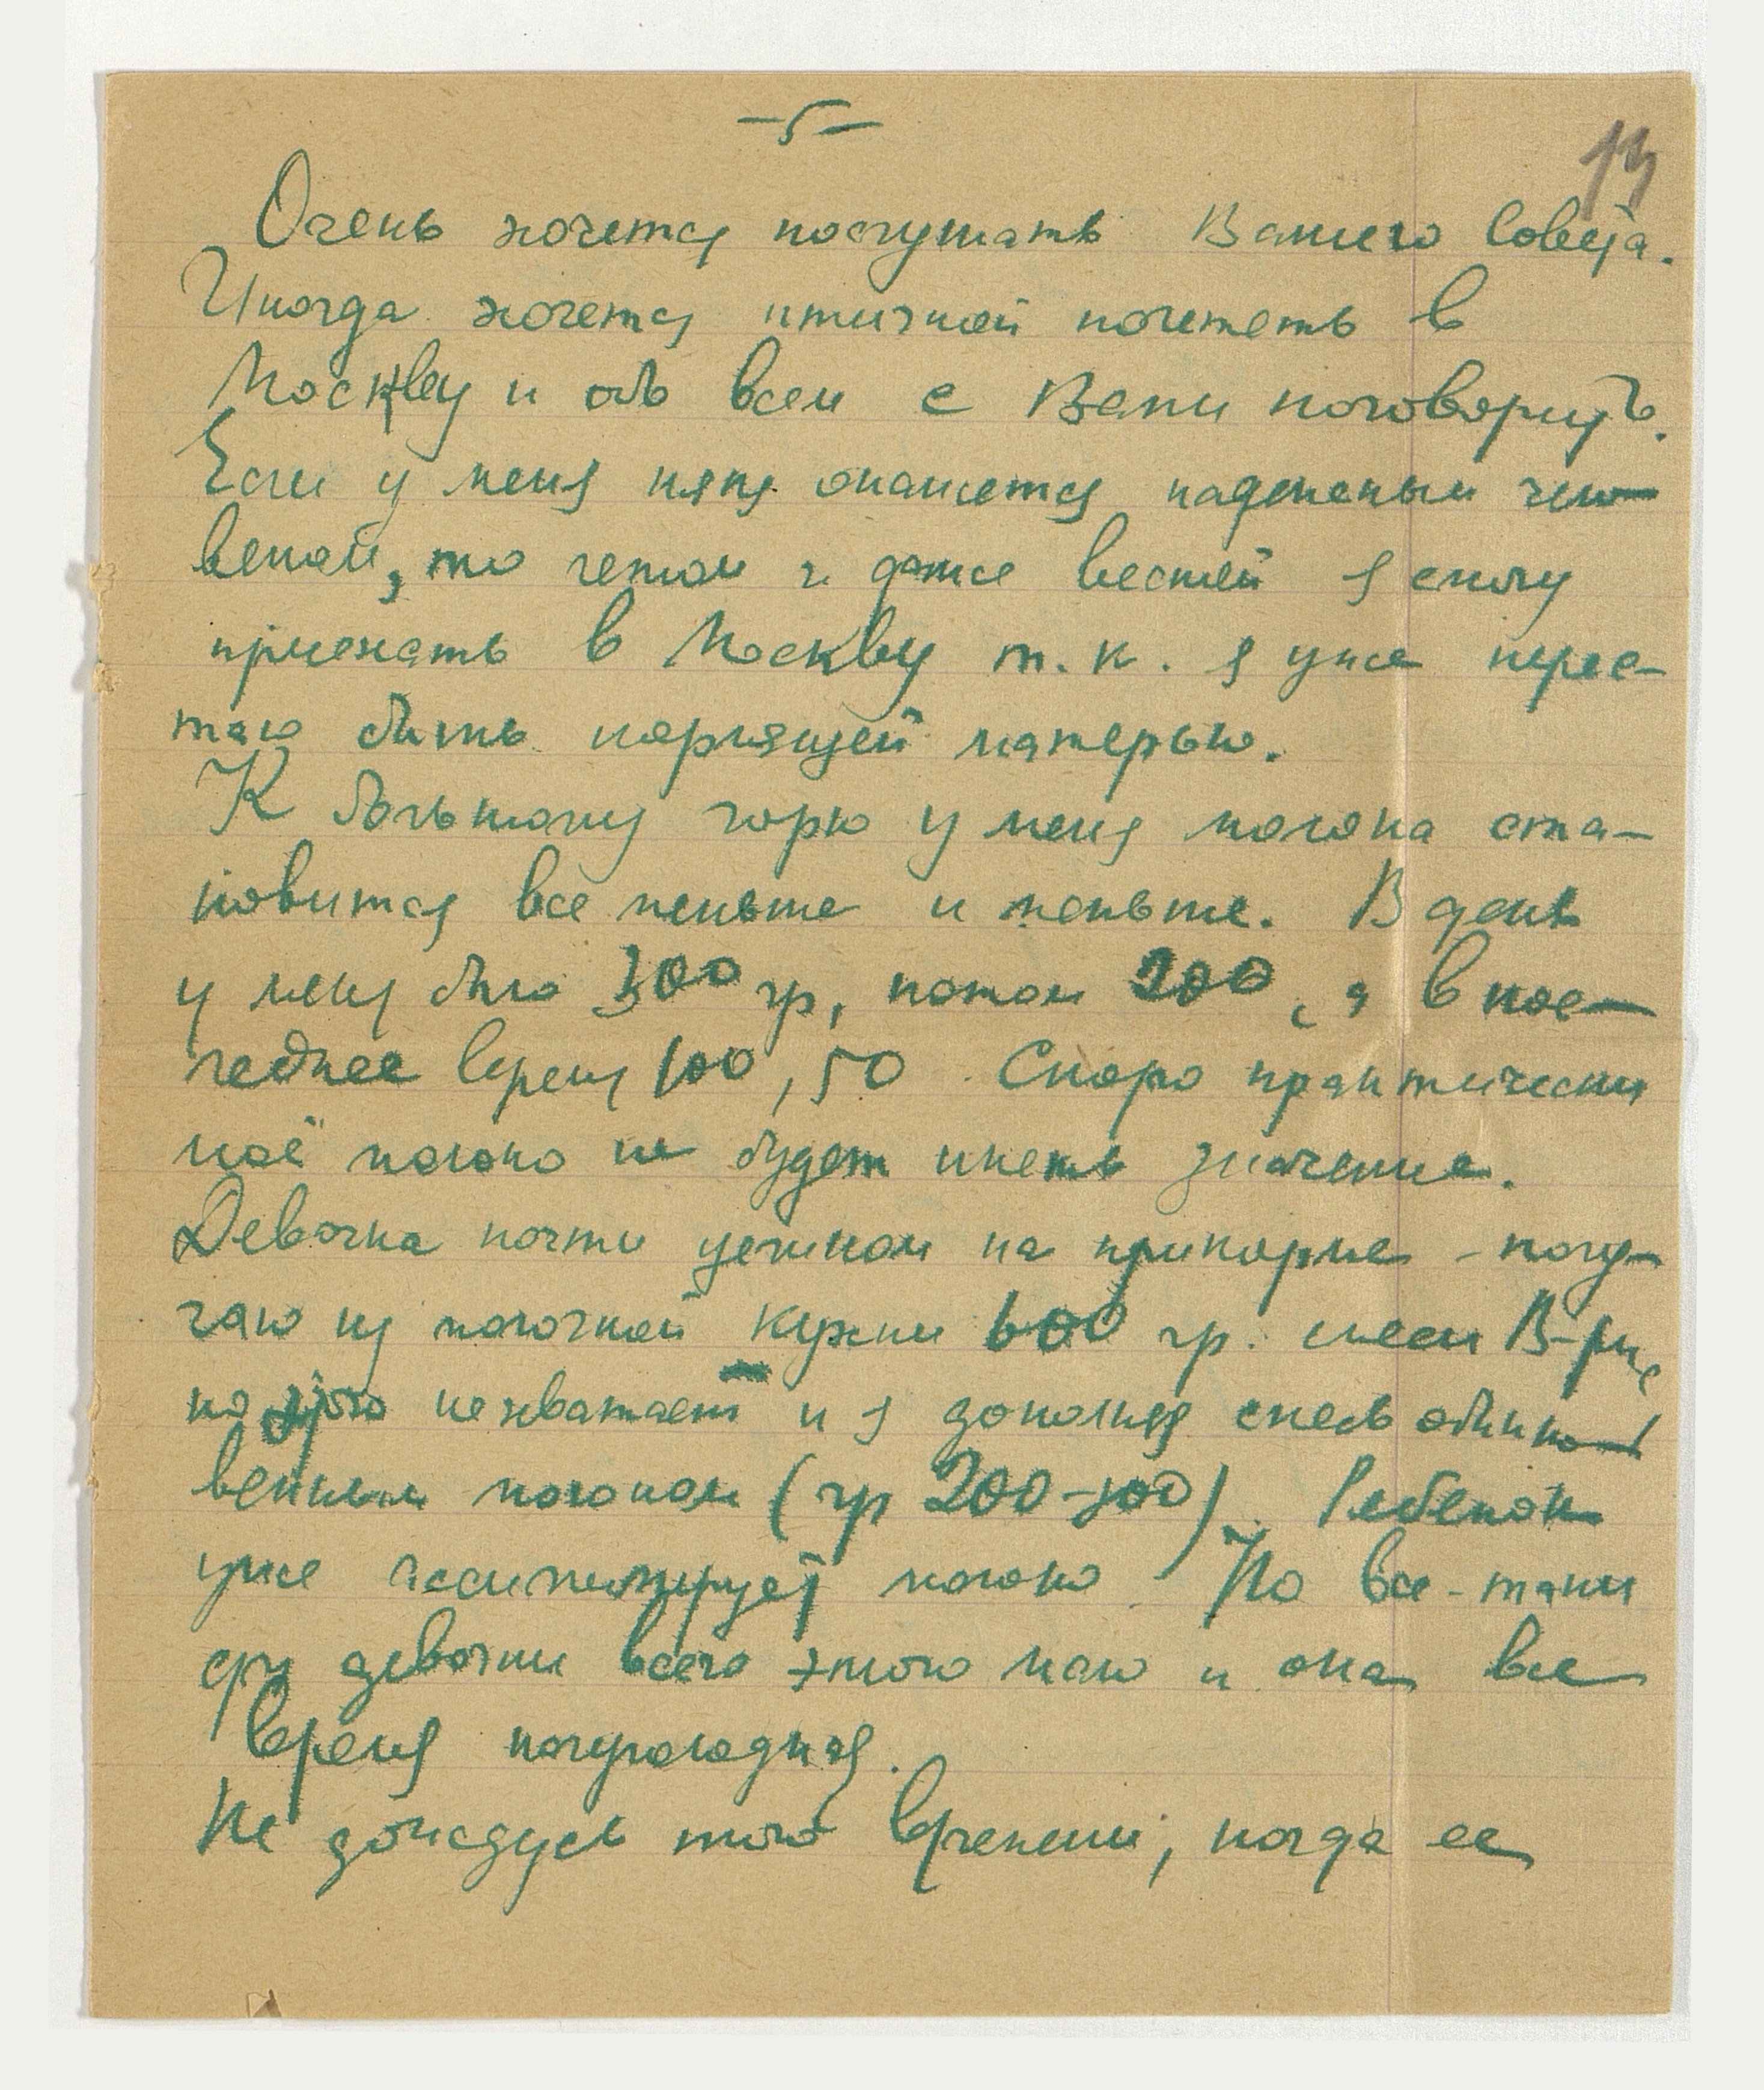 -5-
13
Очень хочется послушать Вашего Совета.
Иногда хочется птичкой полететь в
Москву и обо всем с Вами поговорить.
Если у меня няня окажется надежным чело-
веком, то летом и даже весной я смогу
приехать в Москву т.к. я уже перес-
таю быть кормящей матерью.
К большому горю у меня молока ста-
новится все меньше и меньше. В день
у меня было 300 гр, потом 200, а в пос-
леднее время 100, 50. Скоро практически
моё молоко не будет иметь значение.
Девочка почти целиком на прикорме - полу-
чаю из молочной кухни 600 гр. смеси В-рис
но этого не хватает и я дополняю смесь обыкно-
венным молоком (гр 200-300). Ребенок
уже ассимилирует молоко. Но все-таки
для девочки всего этого мало и она все
время полуголодная.
Не дождусь того времени, когда ее